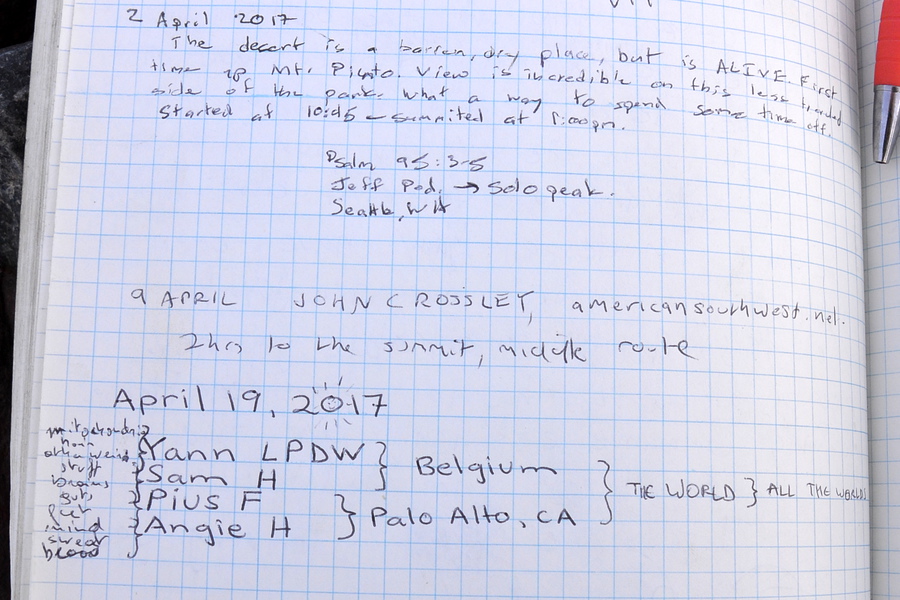 2 April 2017
The desert is a barren, dry place, but is ALIVE. First
time up Mt. Pinto. View is incredible on this less traveled
side of the park. What a way to spend some time off.
Started at 10:45 – summited at 1:00pm.
Psalm 95:3-5
Jeff Pod. → Solo peak.
Seattle, WA
9 APRIL JOHN CROSSLEY, americansouthwest.net.
2hrs to the summit, middle route
April 19, 2017
other weird
stuff
brains
guts
mind
swear
blood
Yann LPDW } Belgium
Sam H
Pius F } Palo Alto, CA
Angie H
} THE WORLD } ALL THE WORLDS